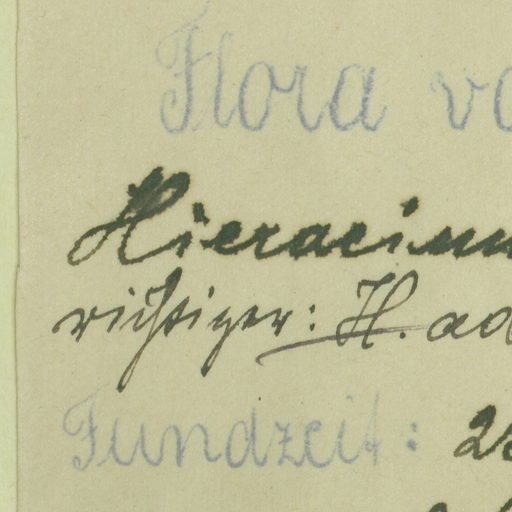 Flora vo
Hieracium
richtiger: H. ad
Fundzeit: 2